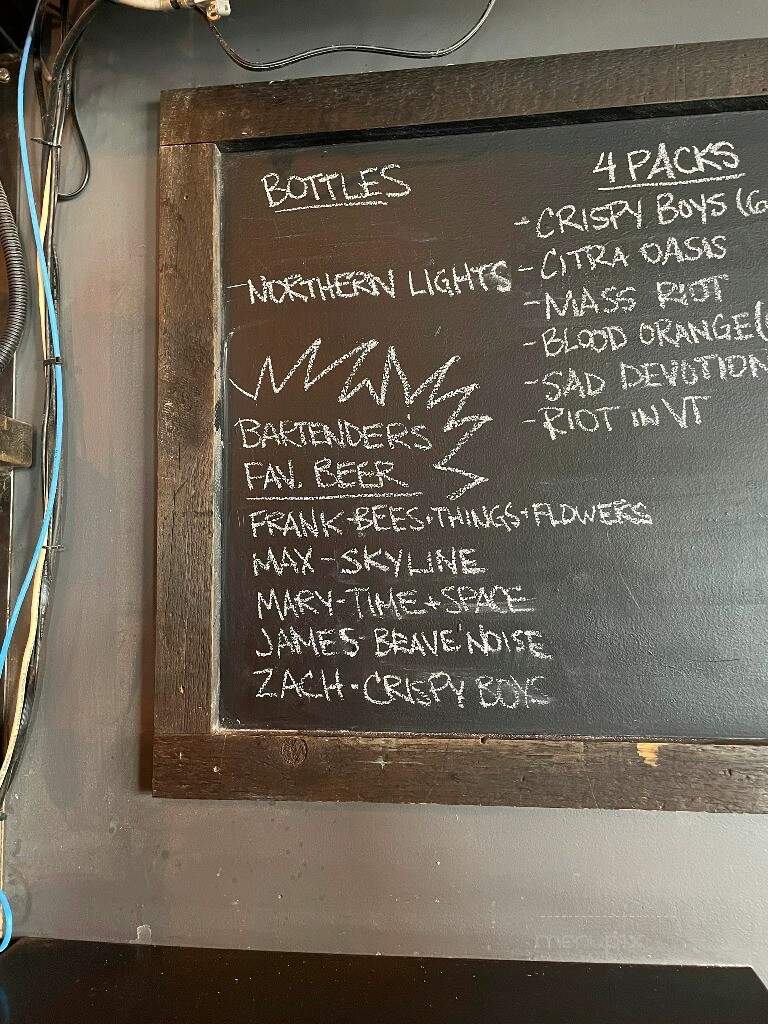 BOTTLES
-NORTHERN LIGHTS
4 PACKS
-CRISPY BOYS (6
-CITRA OASIS
-MASS RIOT
-BLOOD ORANGE (
-SAD DEVOTION
-RIOT IN VT
BARTENDER'S
FAV. BEER
FRANK-BEES+THINGS+FLOWERS
MAX-SKYLINE
MARY-TIME+SPACE
JAMES-BRAVE NOISE
ZACH-CRISPY BOYS
menupix